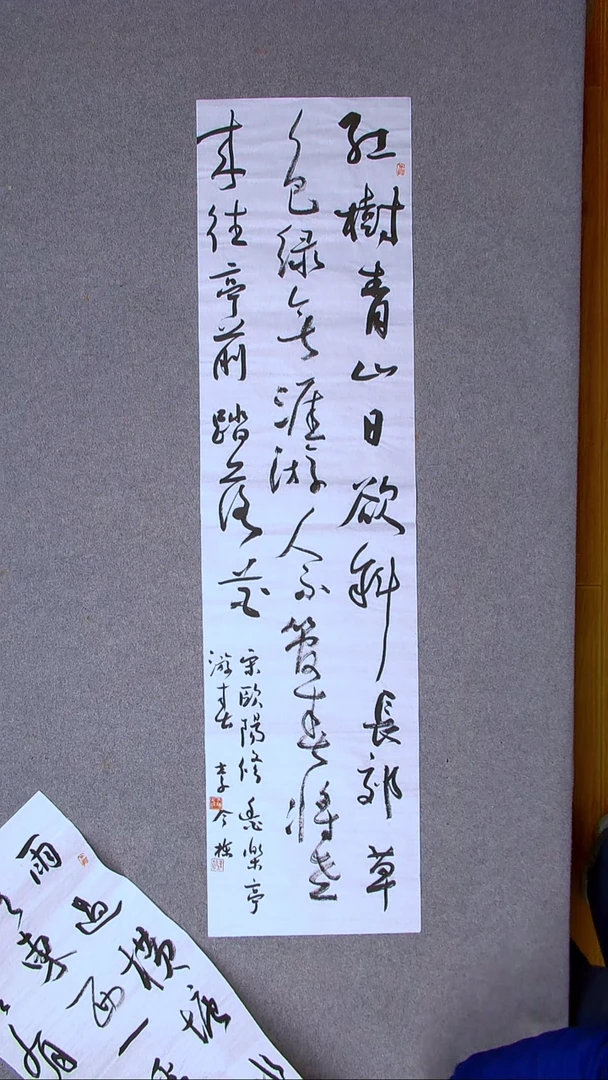 紅樹青山日欲斜長郊草
色緑無涯游人不管春將老
来往亭前踏落花
宋歐陽修豐樂亭
游春 李
雨過橫塘
東西一
有